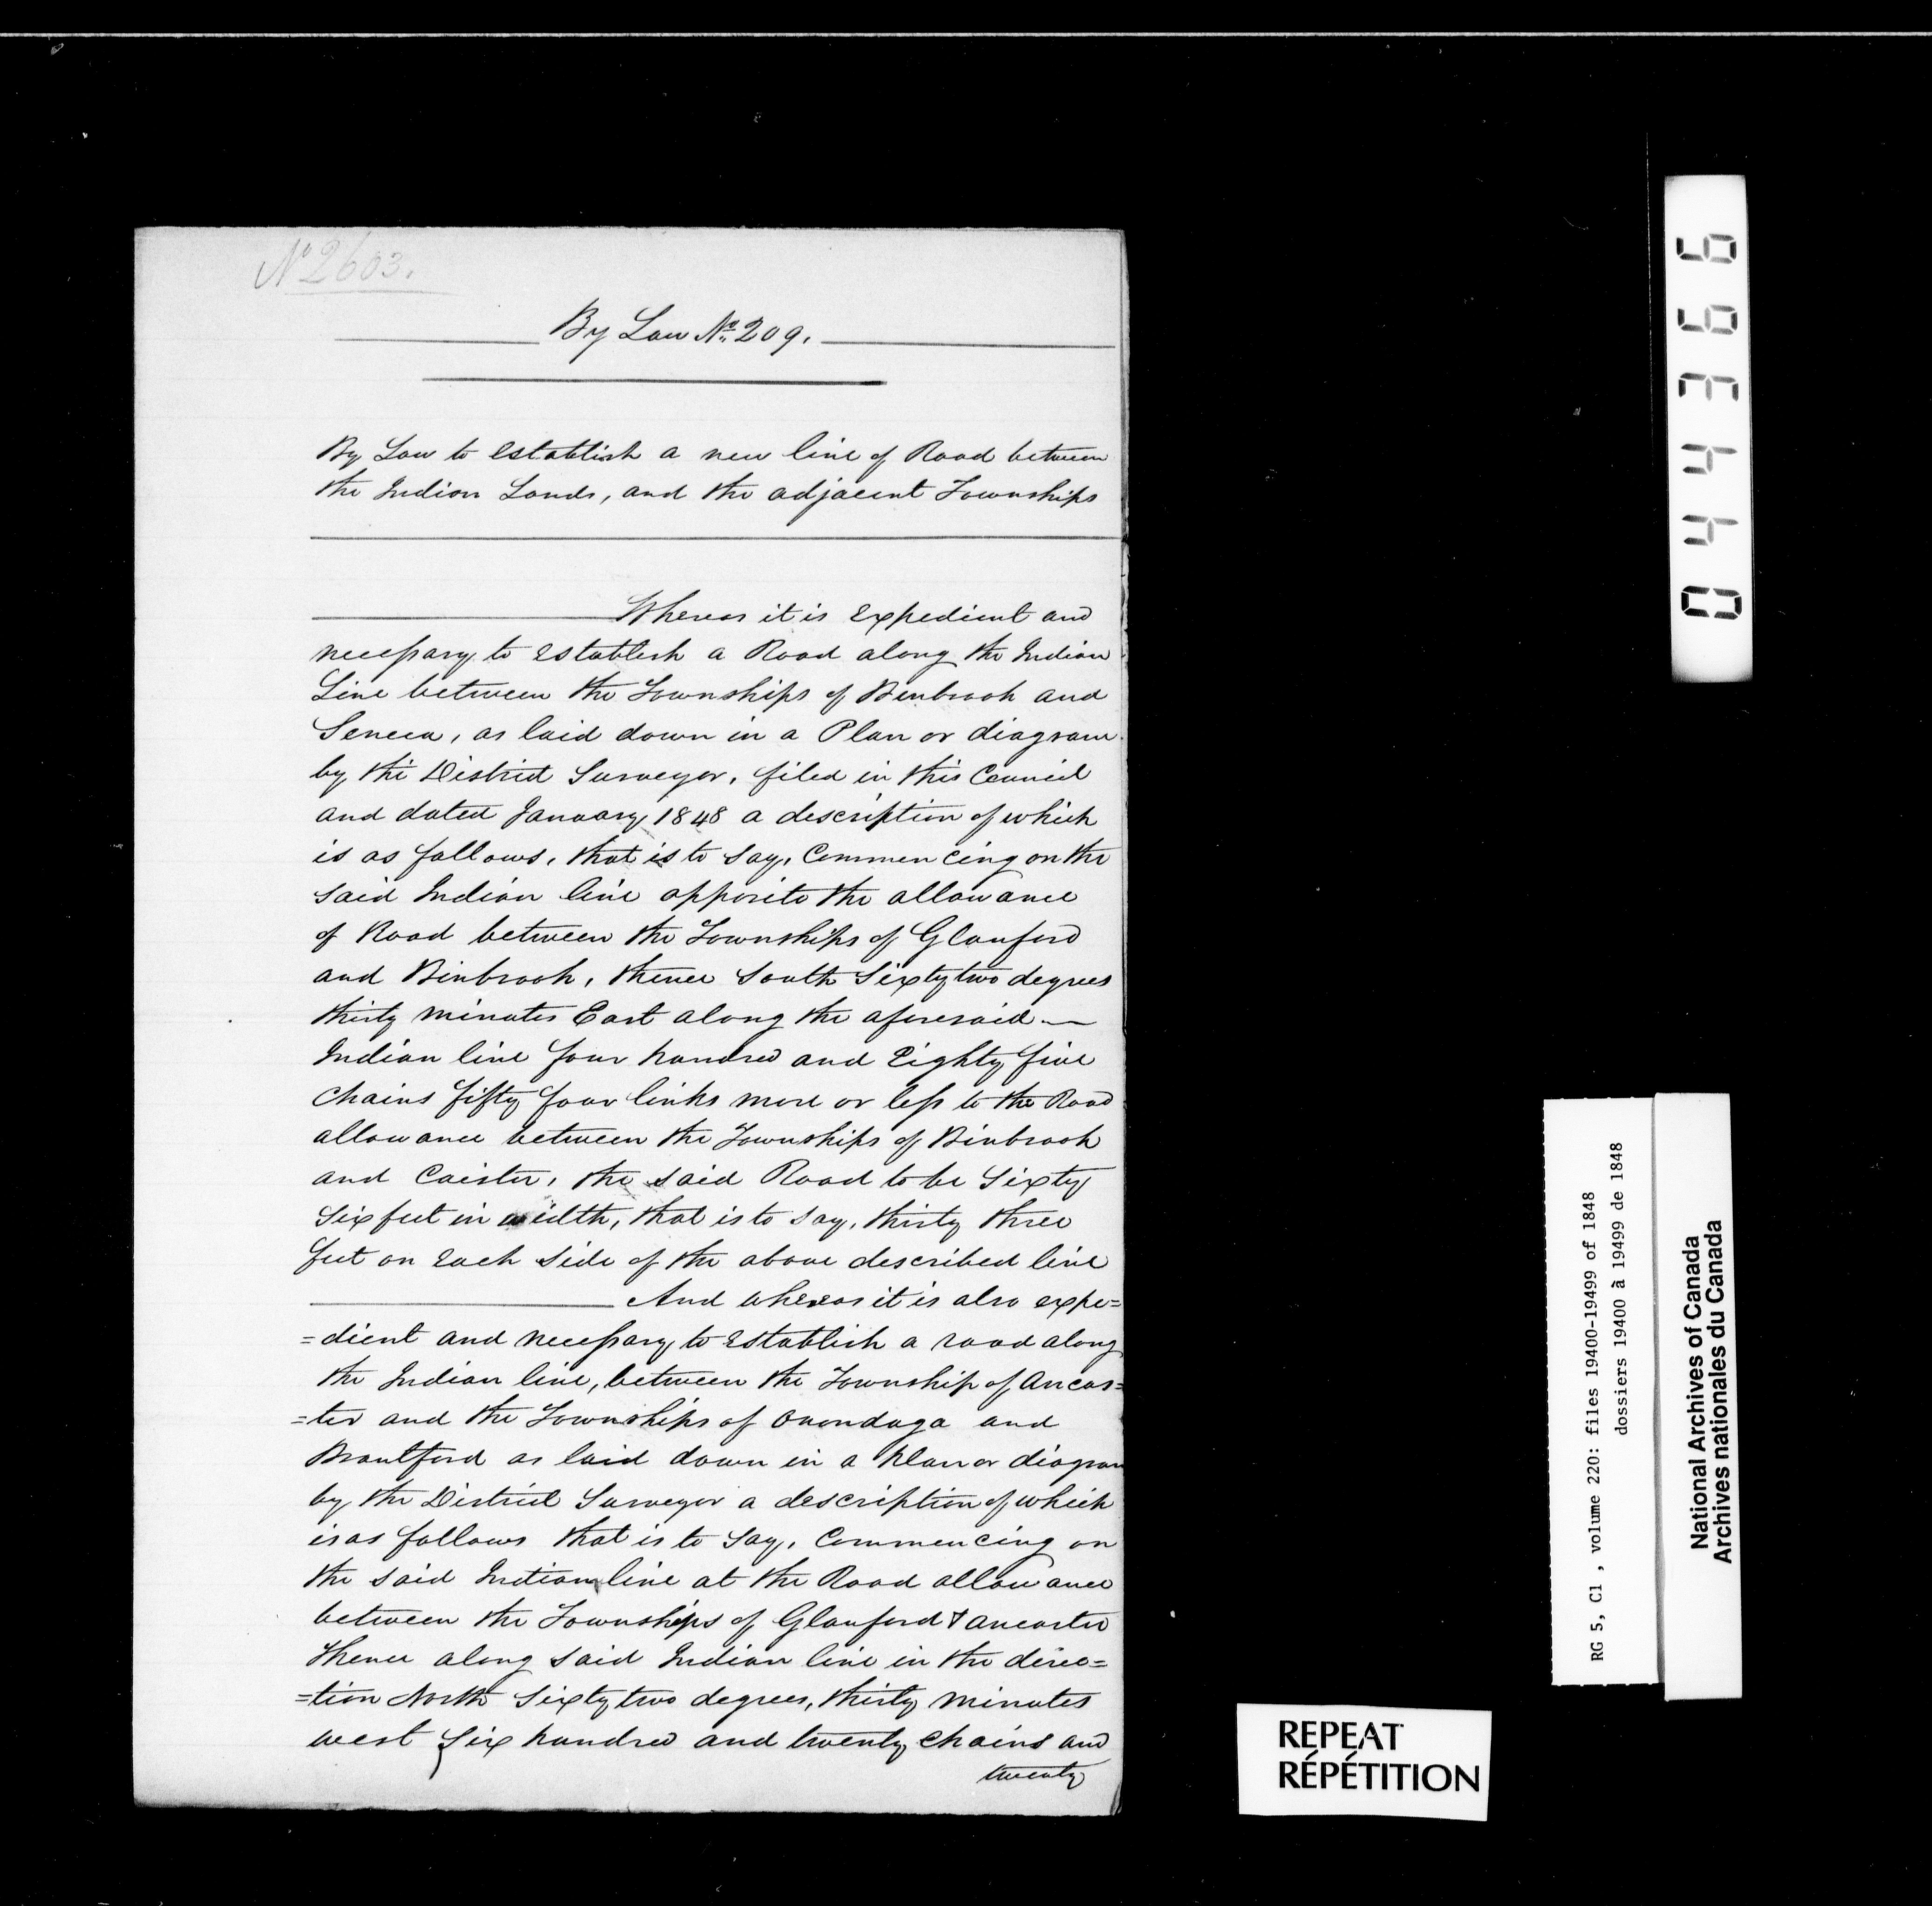 No 2603.
By Law No. 209.
By Law to establish a new line of Road between
the Indian Lands, and the adjacent Townships
Whereas it is expedient and
necessary to establish a Road along the Indian
Line between the Townships of Binbrook and
Seneca, as laid down in a Plan or diagram
by the District Surveyor, filed in this Council
and dated January 1848 a description of which
is as follows, that is to say, Commencing on the
said Indian line opposite the allowance
of Road between the Townships of Glanford
and Binbrook, thence South Sixty two degrees
thirty minutes East along the aforesaid
Indian line four hundred and Eighty five
Chains fifty four links more or less to the Road
allowance between the Townships of Binbrook
and Caister, the said Road to be Sixty
Six feet in width, that is to say, thirty three
feet on Each side of the above described line
And whereas it is also expe=
=dient and necessary to Establish a road along
the Indian line, between the Township of Ancas=
=ter and the Townships of Onondaga and
Brantford as laid down in a plan or diagram
by the District Surveyor a description of which
is as follows that is to say, Commencing on
the said Indian line at the Road allowance
between the Townships of Glanford & Ancaster
thence along said Indian line in the direc=
=tion North Sixty two degrees, thirty minutes
west Six hundred and twenty chains and
twenty
044366
RG 5, C1 , volume 220: files 19400-19499 of 1848
dossiers 19400 à 19499 de 1848
National Archives of Canada
Archives nationales du Canada
REPEAT
RÉPÉTITION